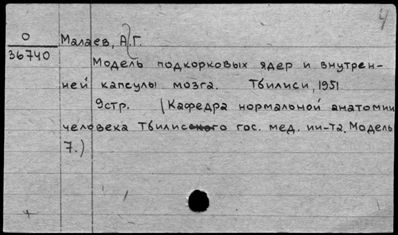 4
0
36740
Малаев, А.Г.
Модель подкорковых ядер и внутрен-
ней капсулы мозга. Тбилиси, 1951
9стр. (Кафедра нормальной анатомии
человека Тбилисского гос. мед. ин-та. Модель
7.)